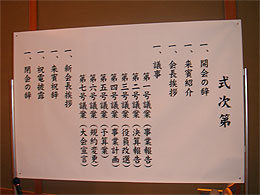 式次第
一、開会の辞
一、来賓紹介
一、会長挨拶
一、議事
第一号議案（事業報告）
第二号議案（決算報告）
第三号議案（役員改選）
第四号議案（事業計画）
第五号議案（予算案）
第六号議案（規約変更）
第七号議案（大会宣言）
一、新会長挨拶
一、来賓祝辞
一、祝電披露
一、閉会の辞